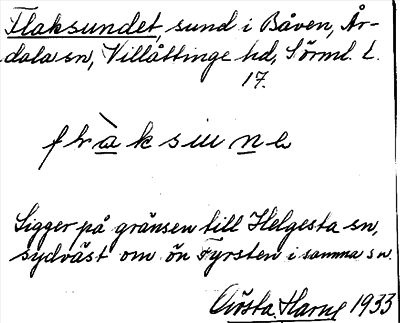 Flaksundet, sund i Båven, År-
dala sn, Villåttinge hd, Sörml. l.
17.
Ligger på gränsen till Helgesta sn,
sydväst om ön Fyrsten i samma sn.
Gösta Harne 1933